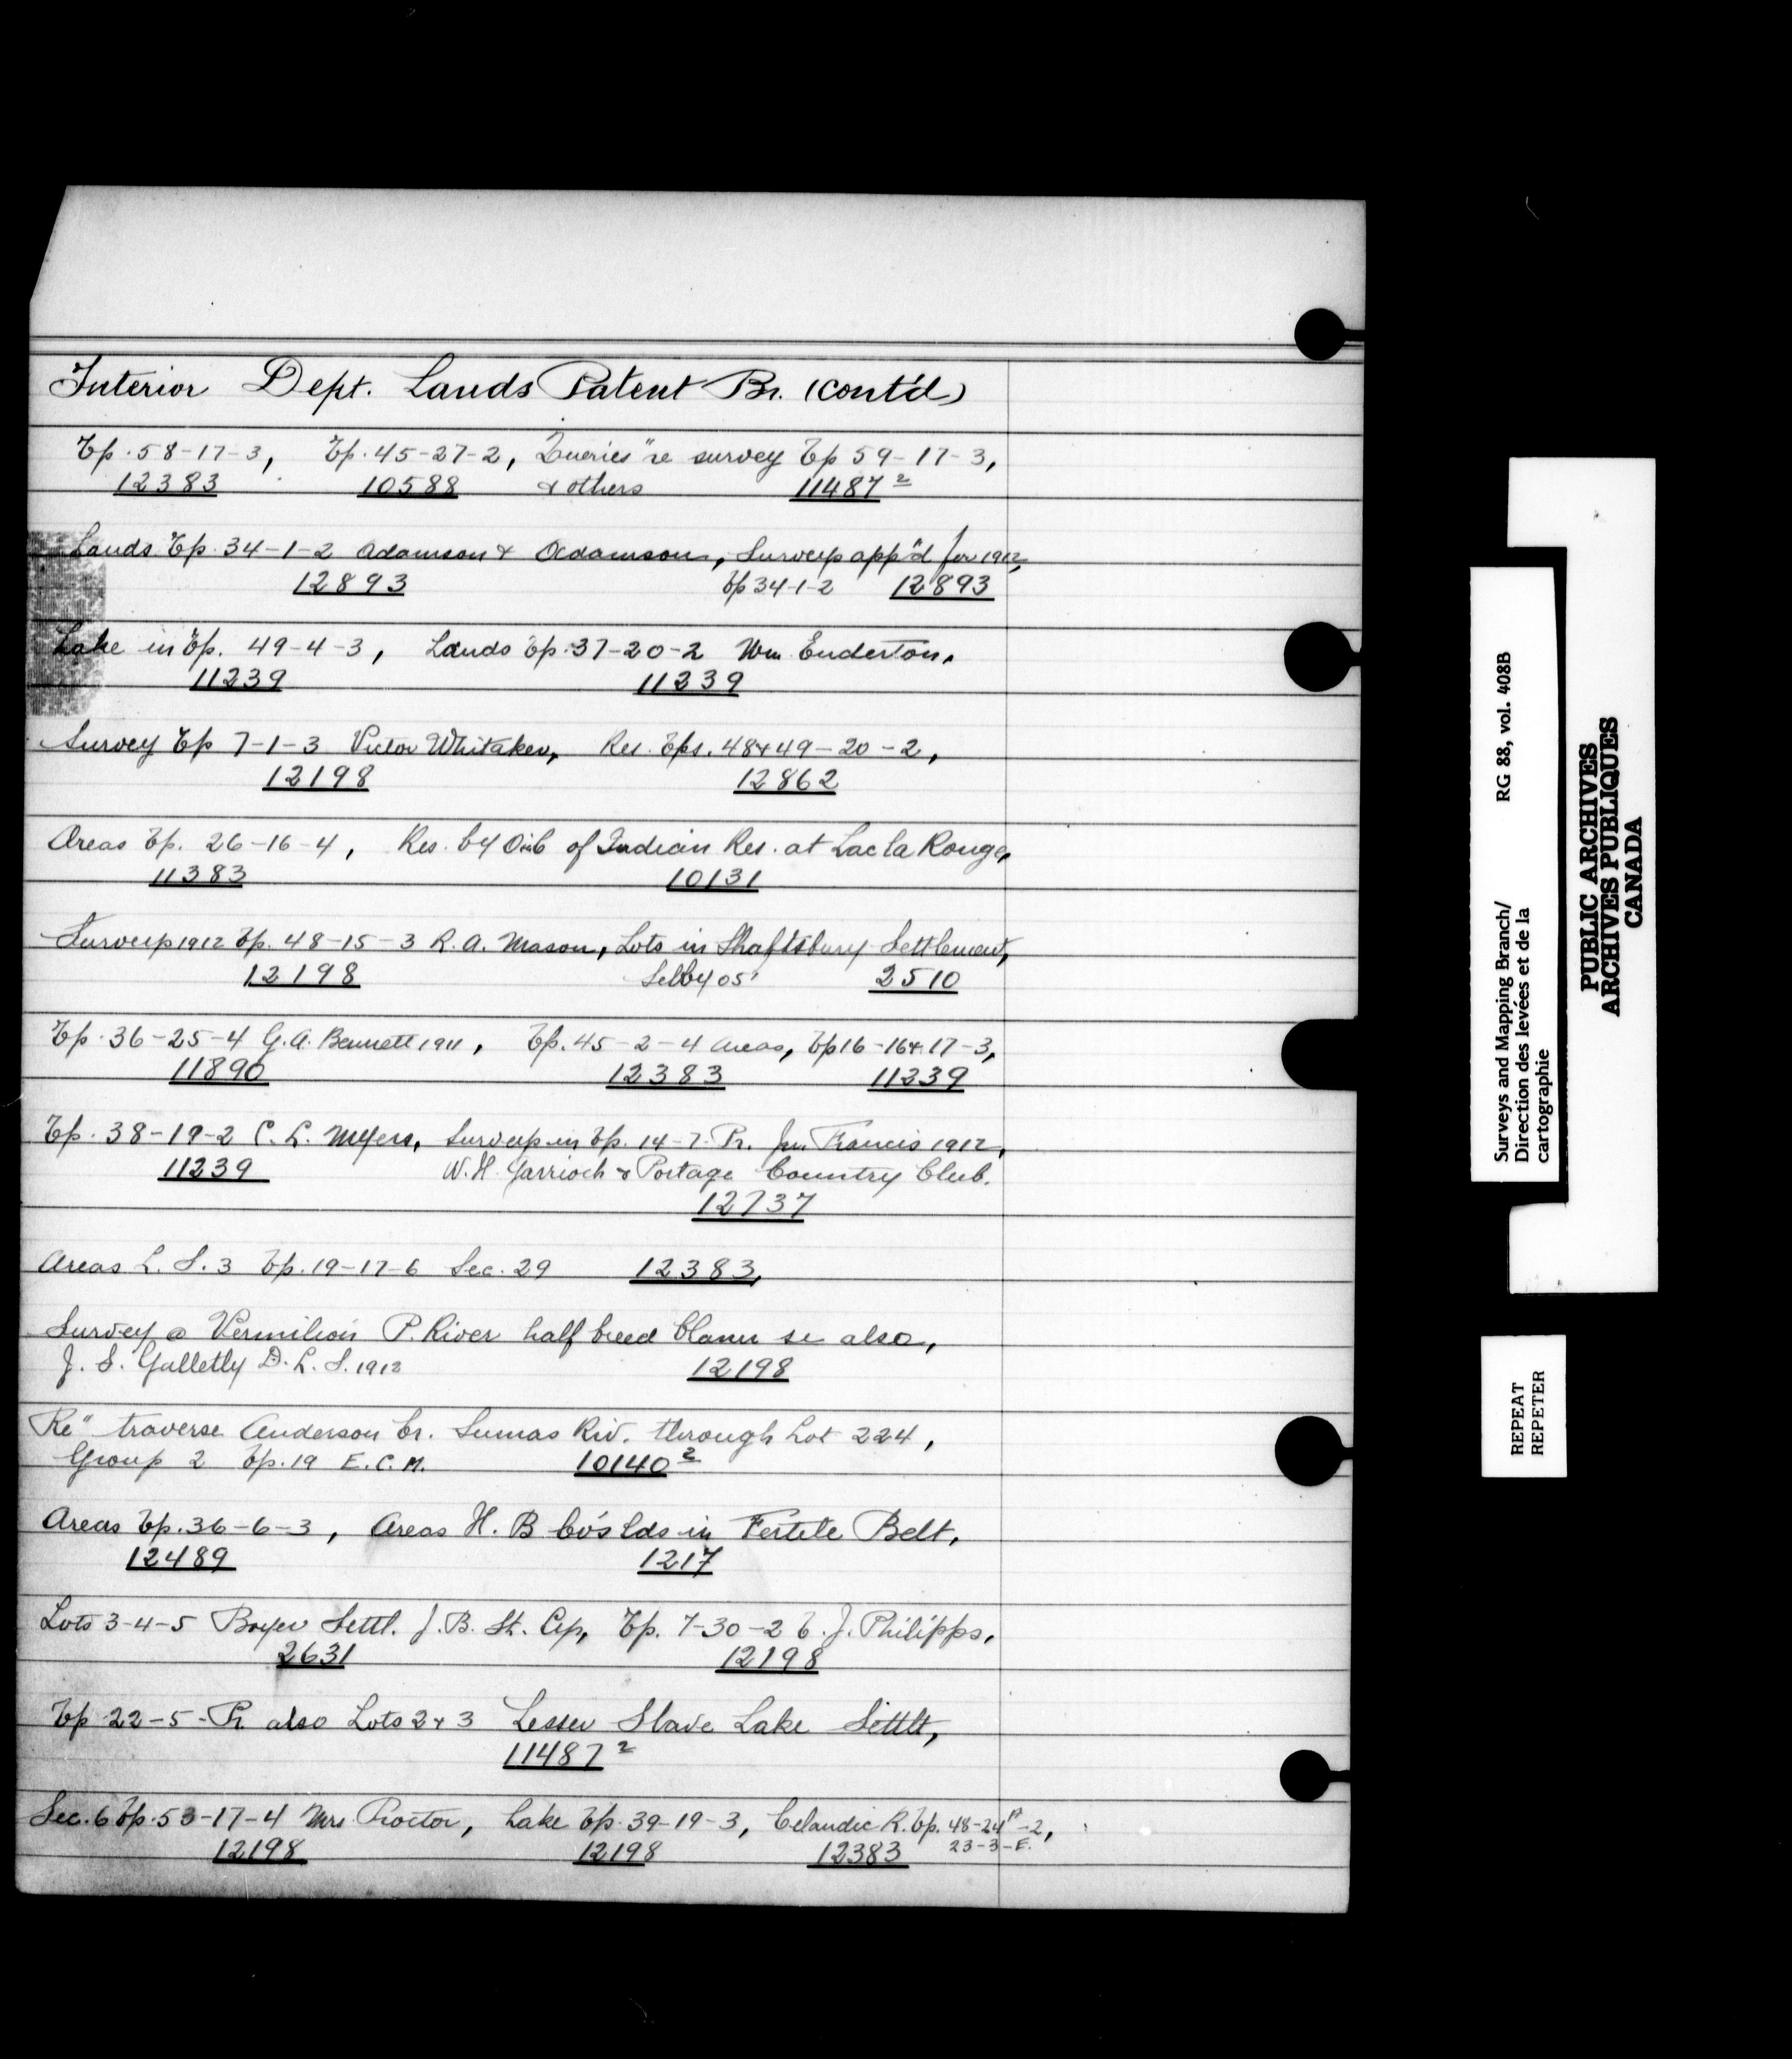 Interior Dept. Lands Patent Br. (cont'd)
Tp. 58-17-3, Tp. 45-27-2, Queries "re survey Tp 59-17-3,
12383 10588 & others 11487²
Lands Tp. 34-1-2 Adamson & Adamson, Surveys app'd for 1912,
12893 Tp 34-1-2 12893
Lake in Tp. 49-4-3, Lands Tp. 37-20-2 Wm Enderton,
11239 11239
Survey Tp 7-1-3 Victor Whitaker, Res. Tps. 48&49-20-2,
12198 12862
Areas Tp. 26-16-4, Res. by O in C of Indian Res. at Lac la Ronge,
11383 10131
Surveys 1912 Tp. 48-15-3 R. A. Mason, Lots in Shaftsbury Settlement,
12198 Selby 05' 2510
Tp. 36-25-4 G. A. Bennett 1911, Tp. 45-2-4 areas, Tp 16-16&17-3,
11890 12383 11239
Tp. 38-19-2 C. L. Myers, Surveys in Tp. 14-7-Pr. Jno Francis 1912,
11239 W. H. Garrioch & Portage Country Club.
12737
Areas L. S. 3 Tp. 19-17-6 Sec. 29 12383,
Survey @ Vermilion P. River half breed also,
J. S. Galletly D. L. S. 1912 12198
Re" traverse Anderson Cr. Sumas Riv. through Lot 224,
Group 2 Tp. 19 E. C. M. 10140²
Areas Tp. 36-6-3, Areas H. B Co's lds in Fertile Belt,
12489 1217
Lots 3-4-5 Boyer Settl. J. B. St. Cyr, Tp. 7-30-2 C. J. Philipps,
2631 12198
Tp 22-5-Pr also Lots 2 & 3 Lesser Slave Lake Settlt,
11487²
Sec. 6 Tp. 53-17-4 Mrs. Proctor, Lake Tp. 39-19-3, R. Tp. 48-24A-2,
12198 12198 12383 23-3-E.
Surveys and Mapping Branch/ RG 88, vol. 408B
Direction des levées et de la
cartographie
PUBLIC ARCHIVES
ARCHIVES PUBLIQUES
CANADA
REPEAT
REPETER